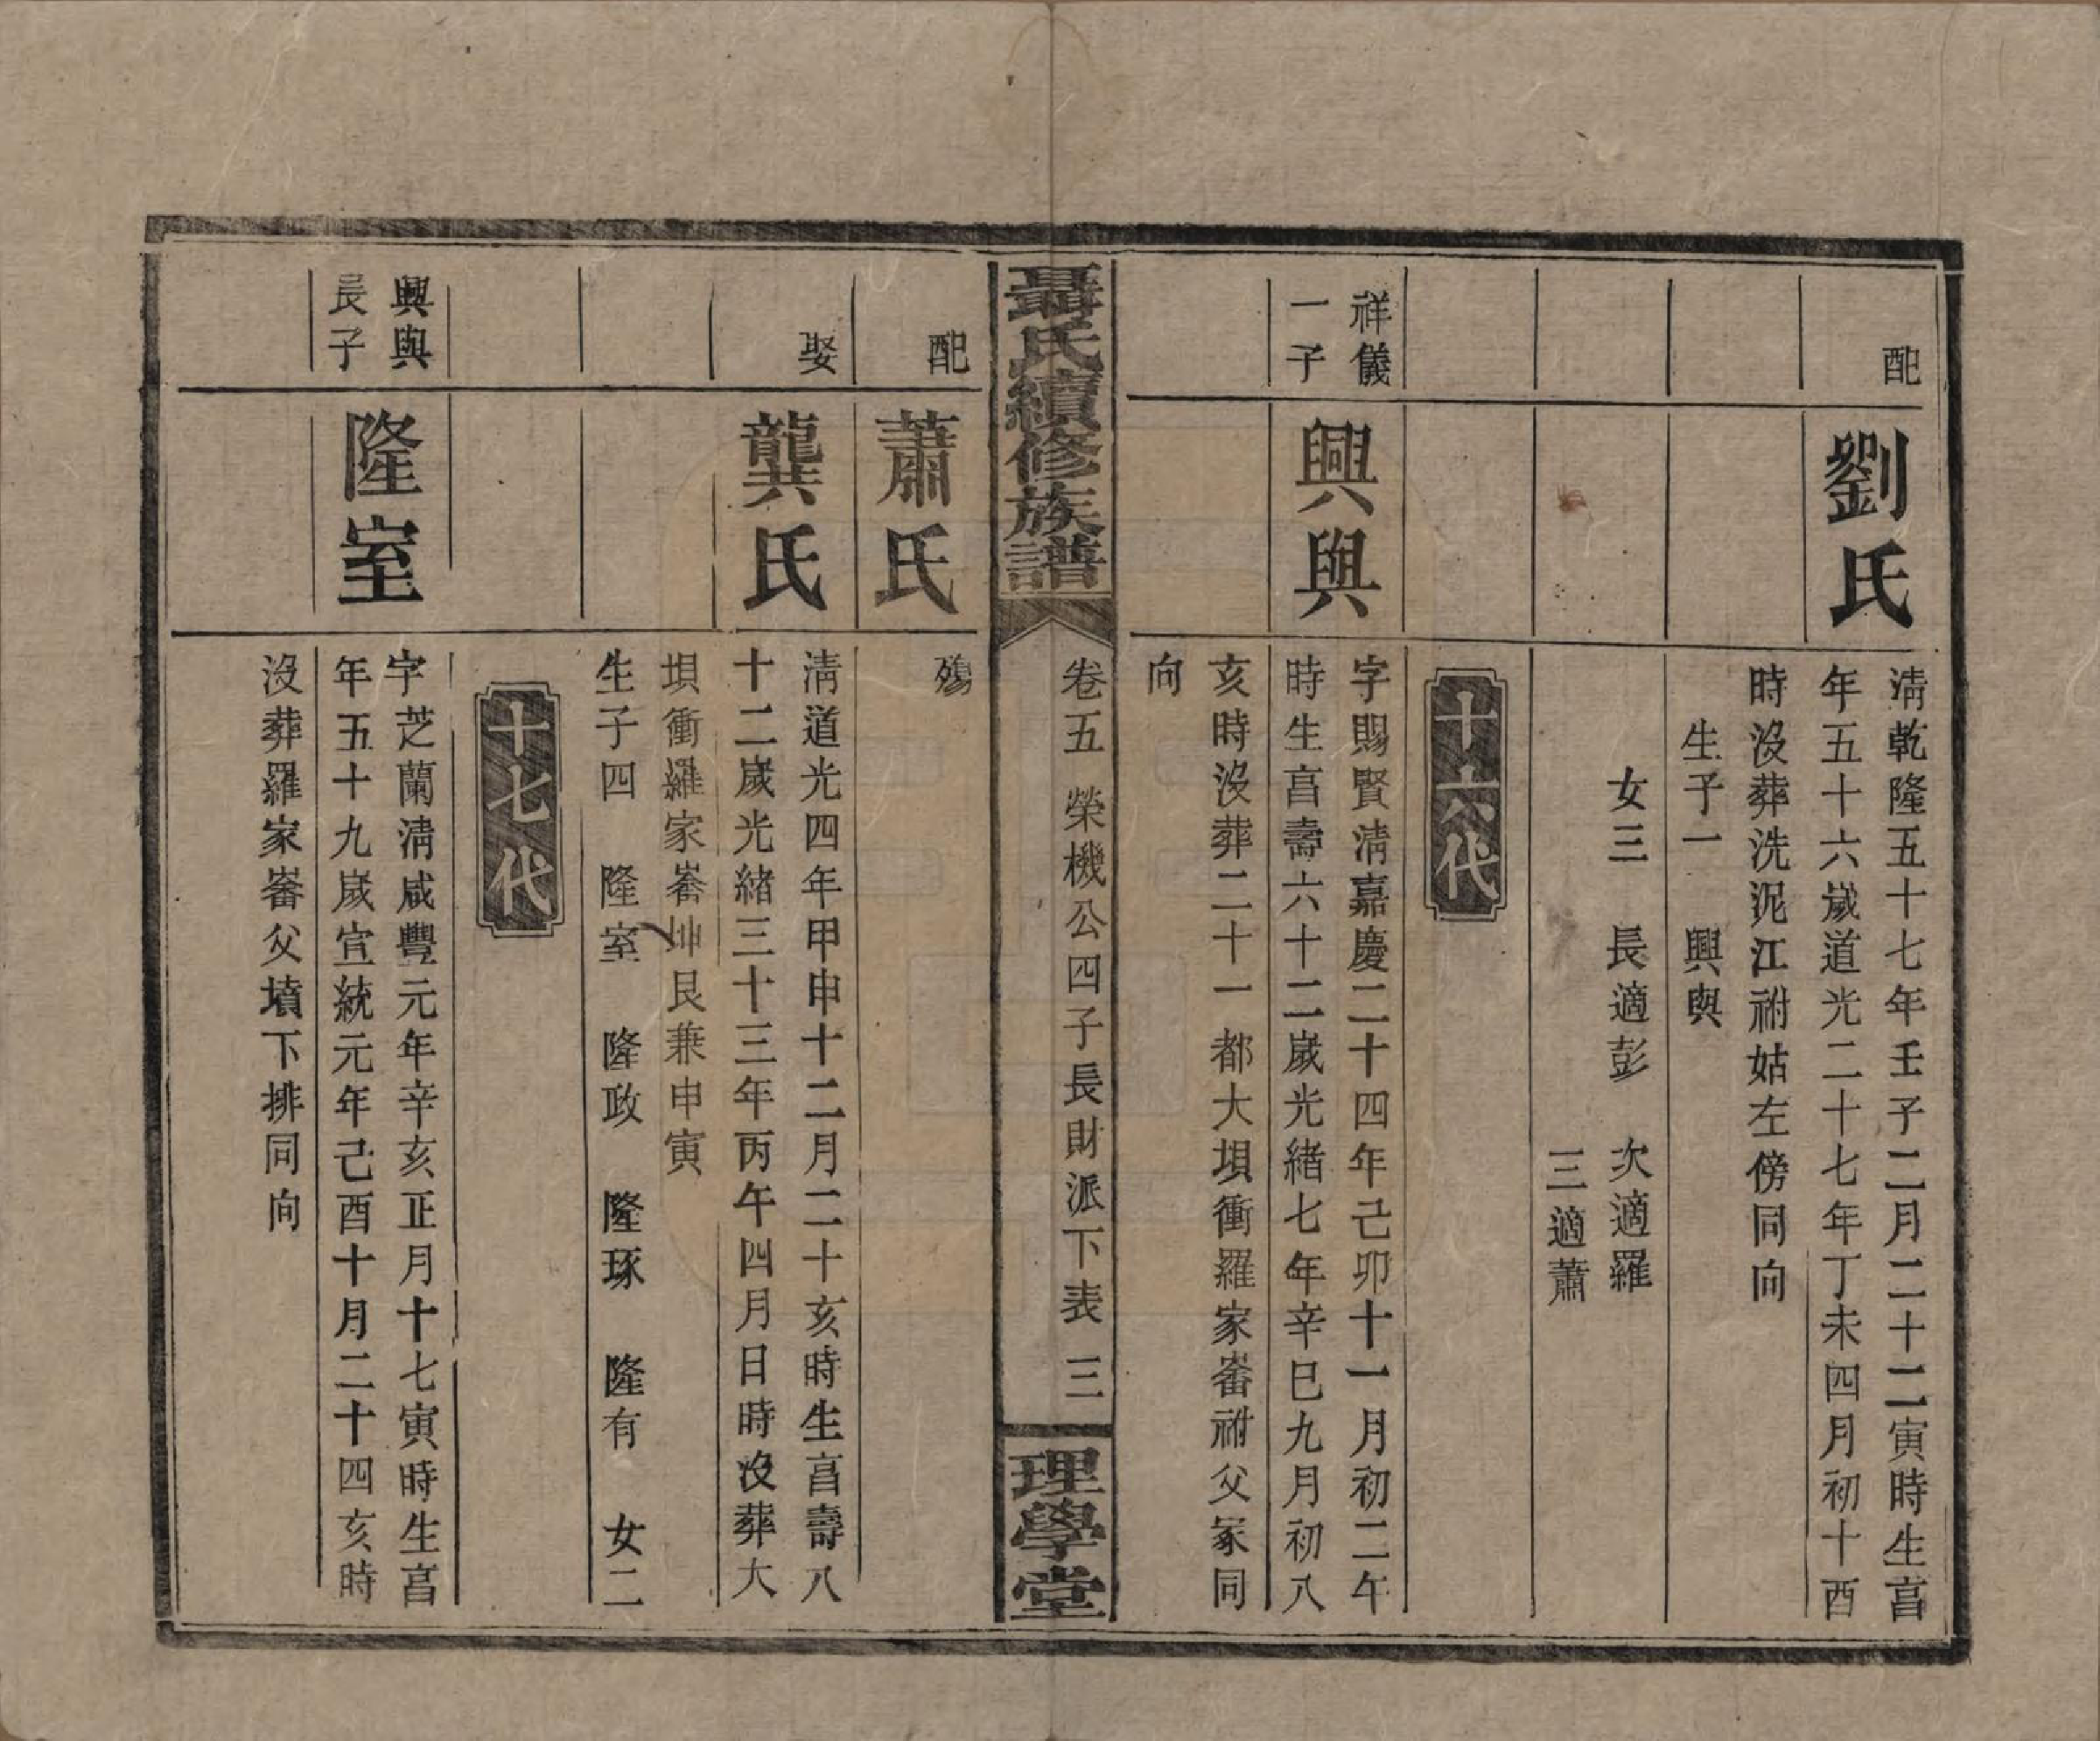 配
劉氏
清乾隆五十七年壬子二月二十二寅時生亯
年五十六歲道光二十七年丁未四月初十酉
時沒葬洗泥江祔姑左傍同向
生子一　興與
女三　長適彭　次適羅
三適蕭
十六代
祥儀
一子
興與
字賜賢清嘉慶二十四年己卯十一月初二午
時生亯壽六十二歲光緒七年辛巳九月初八
亥時沒葬二十一都大垻衝羅家崙祔父冢同
向
聶氏續修族譜
卷五　榮機公四子長財派下表　三
理學堂
配
蕭氏
殤
娶
龔氏
清道光四年甲申十二月二十亥時生亯壽八
十二歲光緒三十三年丙午四月日時沒葬大
垻衝羅家崙坤艮兼申寅
生子四　隆室　隆政　隆琢　隆有　女二
十七代
興與
長子
隆室
字芝蘭清咸豐元年辛亥正月十七寅時生亯
年五十九歲宣統元年己酉十月二十四亥時
沒葬羅家崙父墳下排同向